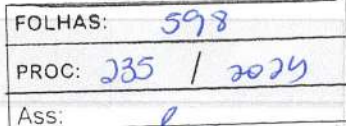 FOLHAS: 598
PROC: 235 / 2024
Ass: